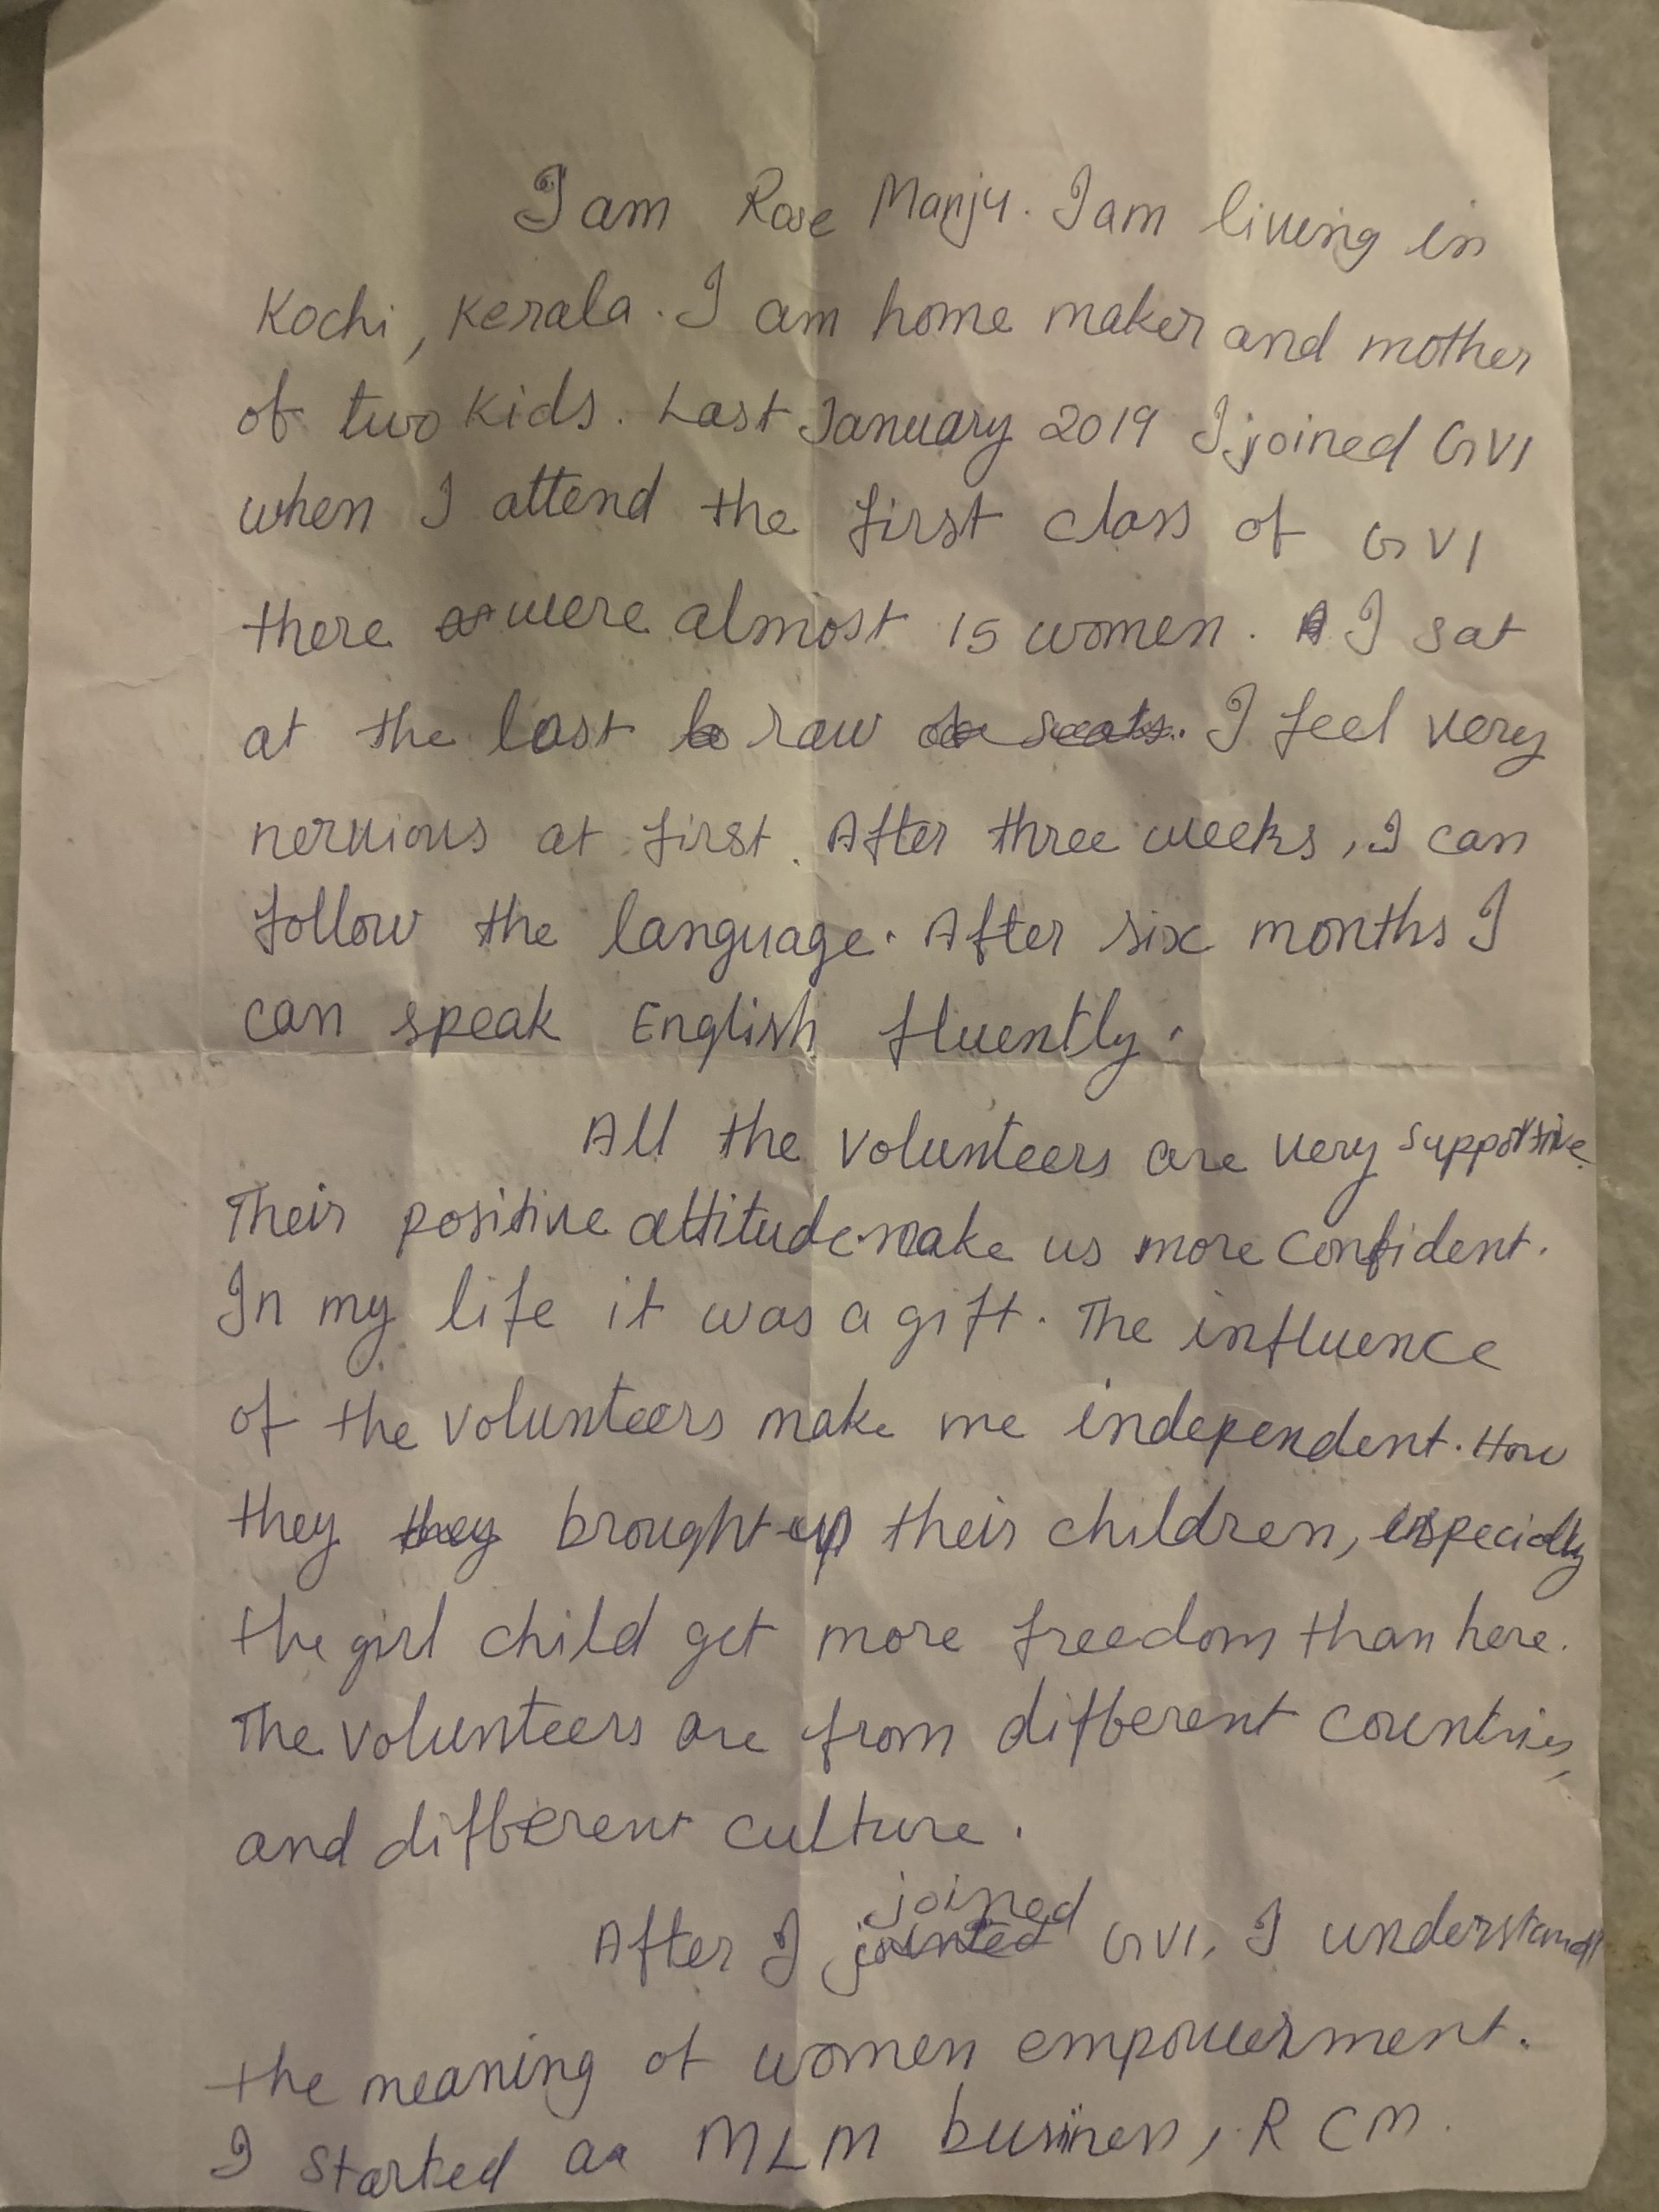 I am Rose Manju. I am living in
Kochi, Kerala. I am home maker and mother
of two kids. Last January 2019 I joined GVI
when I attend the first class of GVI
there were almost 15 women. I sat
at the last raw I feel very
nervious at first. After three weeks, I can
follow the language. After six months I
can speak English fluently.
All the volunteers are very supportive.
Their positive attitude make us more confident.
In my life it was a gift. The influence
of the volunteers make me independent. How
they brought up their children, especially
the girl child get more freedom than here.
The volunteers are from different countries,
and different culture.
After I joined GVI, I understand
the meaning of women empowerment.
I started a MLM business, RCM.